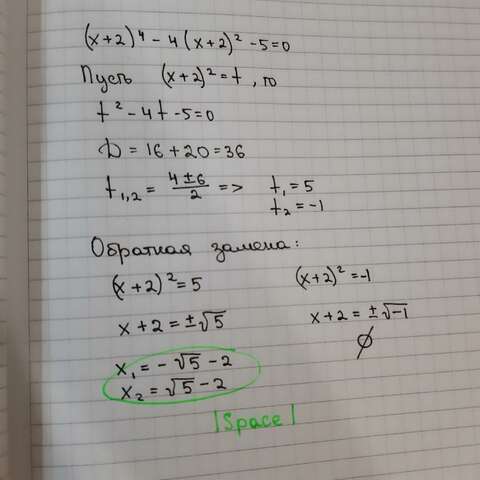 (x+2)⁴ - 4(x+2)² - 5=0
Пусть (x+2)² = t, то
t² - 4t - 5=0
D = 16 + 20 = 36
t₁,₂ = (4±6)/2 => t₁ = 5
t₂ = -1
Обратная замена:
(x+2)² = 5
x+2 = ±√5
x₁ = -√5 - 2
x₂ = √5 - 2
(x+2)² = -1
x+2 = ±√-1
∅
|Space|